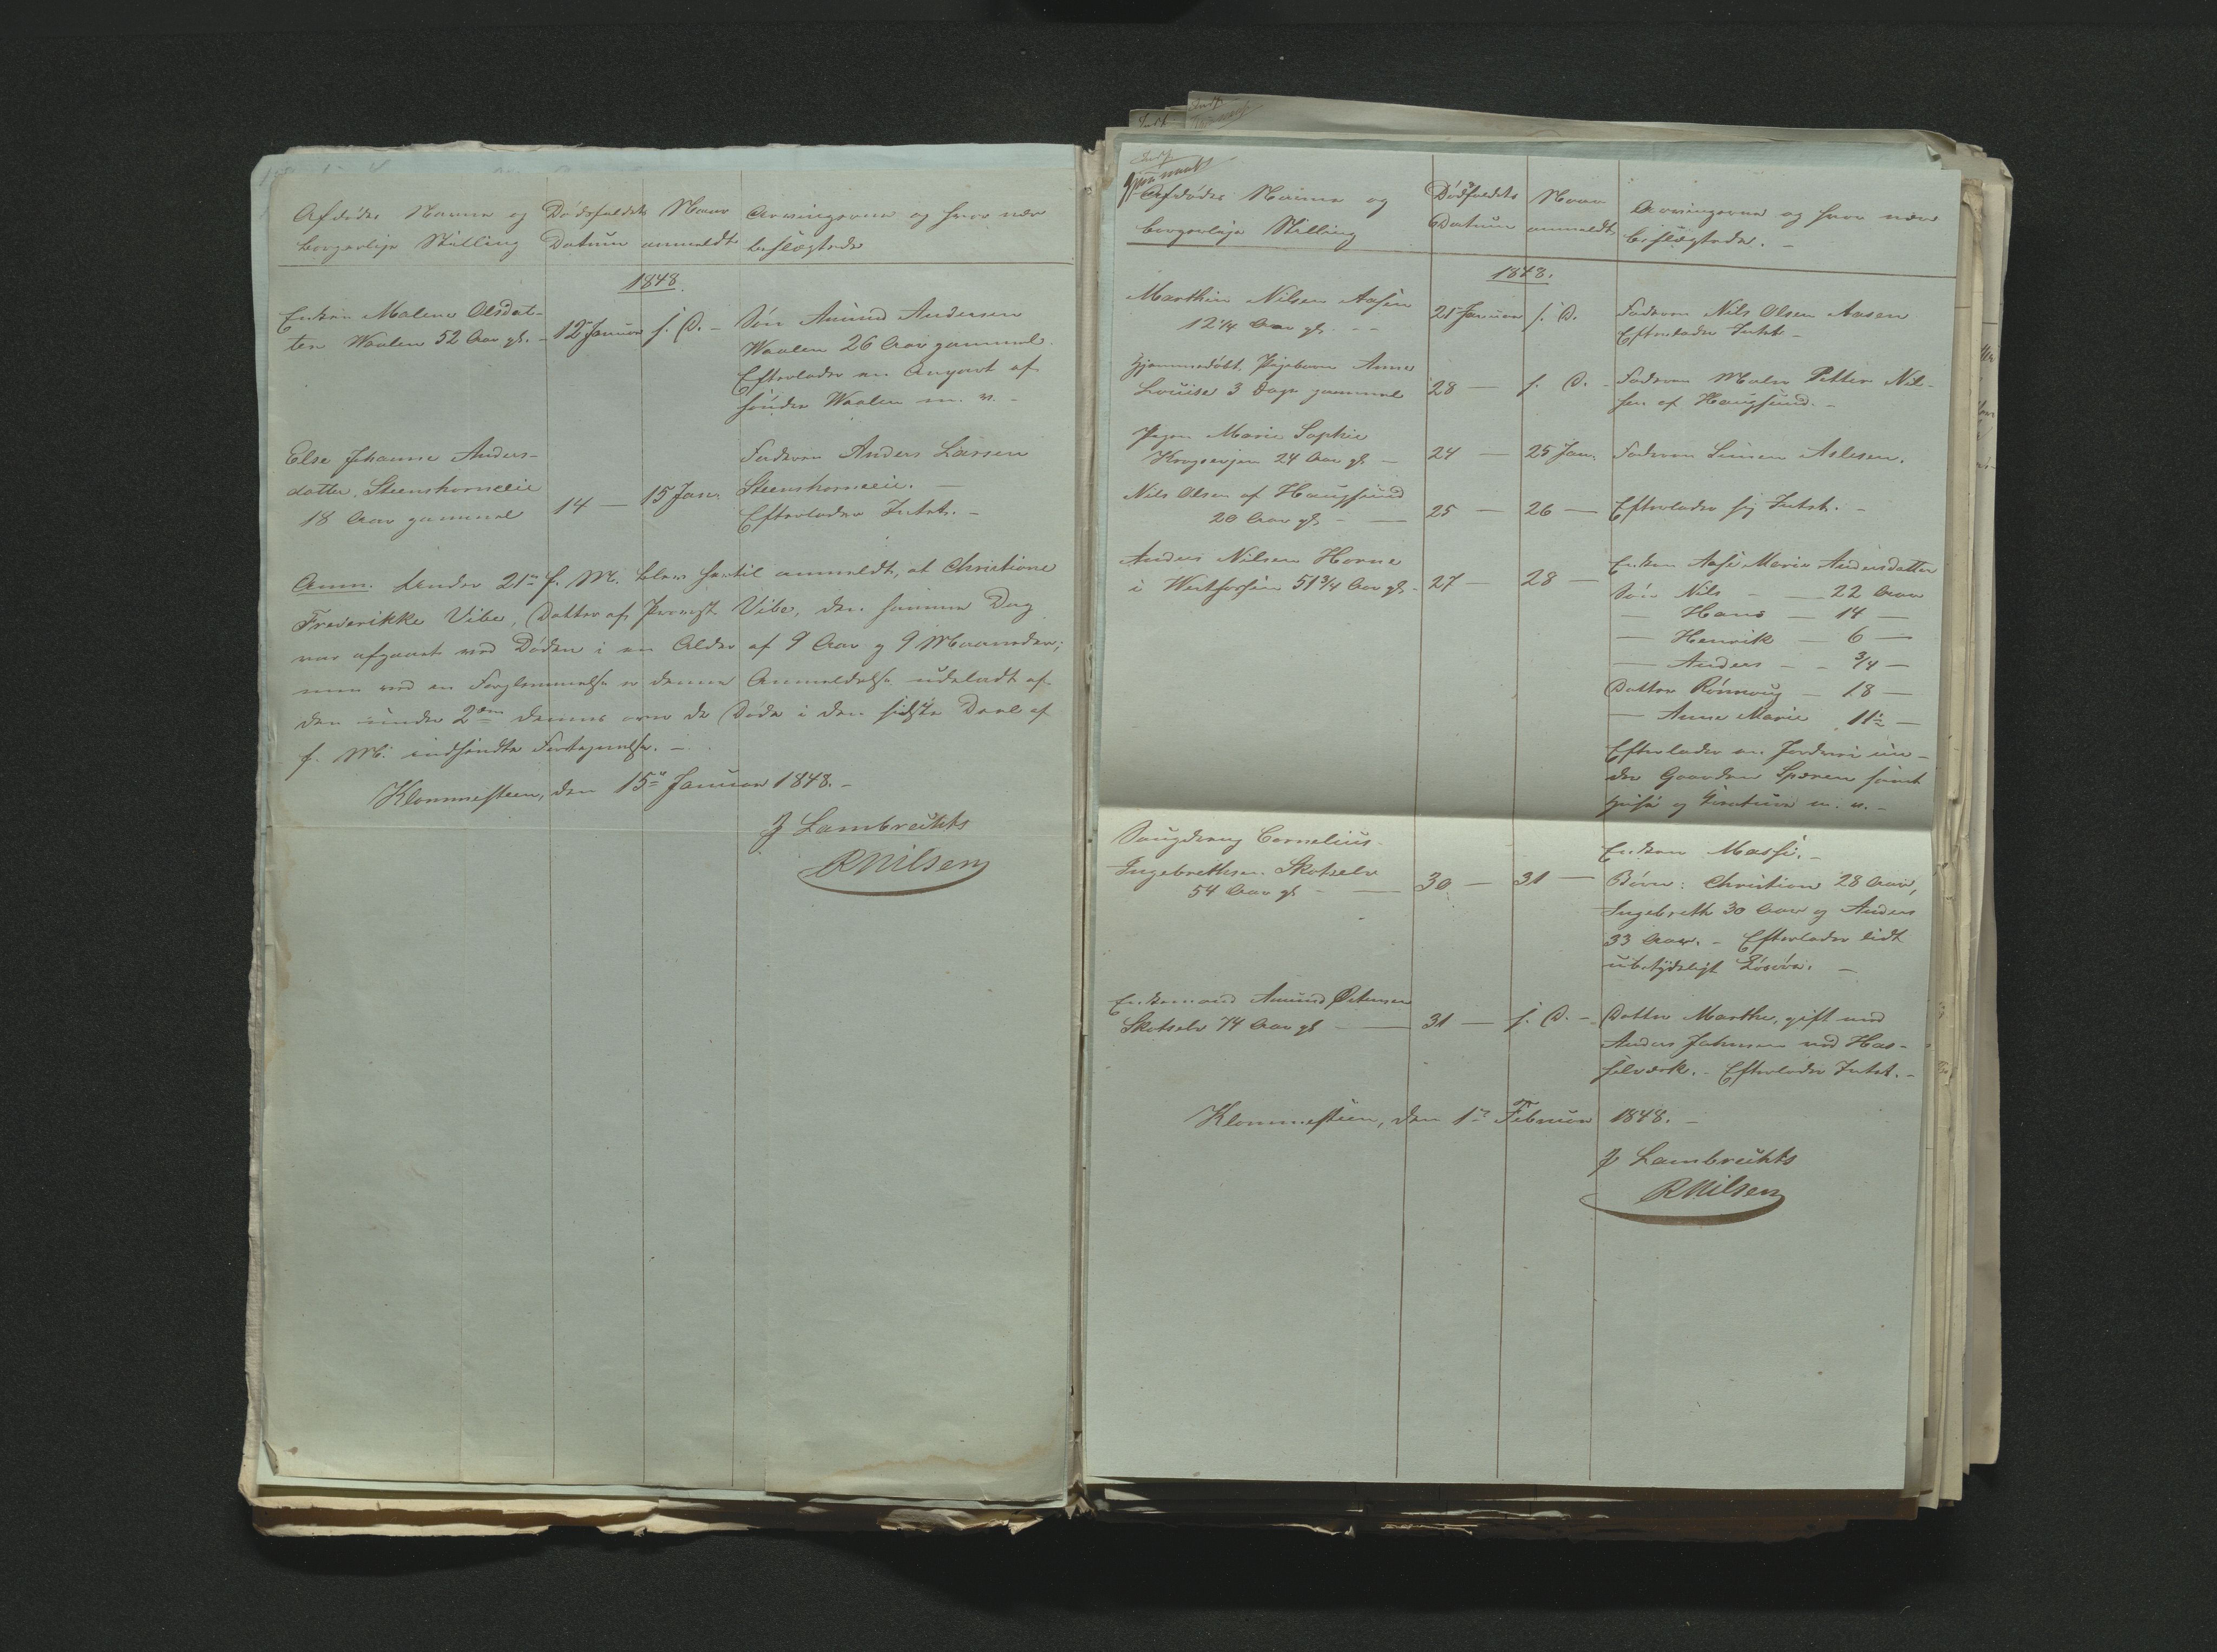 Afdødes Navne og
borgerlige Stilling
Dødsfaldets
Datum
Naar
anmeldt
Arvingerne og hvor nær
beslægtede
1848.
Enken Malene Olsdat-
ter Waalen 52 Aar gl. -
12 Januar
s. D. -
Søn Amund Andersen
Waalen 26 Aar gammel.
Efterlader en Anpart af
søndre Waalen m. v. -
Else Johanne Anders-
datter, Steenshorneeie
18 Aar gammel
14 —
15 Jan.
Faderen Anders Larsen
Steenshorneeie. —
Efterlader Intet. -
Anm. Under 21de f. M. blev hertil anmeldt, at Christiane
Frederikke Vibe, Datter af Provst Vibe, den samme Dag
var afgaaet ved Døden i en Alder af 9 Aar og 9 Maaneder;
men ved en Forglemmelse er denne Anmeldelse udeladt af
den under 2den dennes over de Døde i den sidste Deel af
f. M. indsendte Fortegnelse. -
Klommesteen, den 15de Januar 1848. -
J Lambrechts
R Nilsen
Afdødes Navne og
borgerlige Stilling
Dødsfaldets
Datum
Naar
anmeldt
Arvingerne og hvor nær
beslægtede. -
1848.
Marthin Nilsen Aasen
12 1/4 Aar gl. - -
21 Januar
s. D.
Faderen Nils Olsen Aasen
Efterlader Intet -
Hjemmedøbt Pigebarn Anne
Louise 3 Dage gammel
28 —
s. D. -
Faderen Maler Petter Nil-
sen af Haugsund. -
Pigen Marie Sophie
24 Aar gl. —
24 —
25 Jan.
Faderen Simen Aslesen.
Nils Olsen af Haugsund
20 Aar gl. - —
25 —
26 —
Efterlader sig Intet. -
Anders Nilsen Horne
i Westfossen 51 3/4 Aar gl. -
27 —
28 —
Enken Aase Marie Andersdatter
Søn Nils - — 22 Aar
— Hans — 14 —
— Henrik — 6 —
— Anders - - 3/4 —
Datter Rønnaug — 18 —
— Anne Marie 11 1/2 —
Efterlader en Jordvei un-
der Gaarden Speren samt
Huse og Creature m. v. -
Saugdreng Cornelius
Ingebrethsen Skotselv
54 Aar gl. - —
30 —
31 —
Enken Massi. -
Børn: Christian 28 Aar,
Ingebreth 30 Aar og Anders
33 Aar. - Efterlader lidt
ubetydeligt Løsøre. —
Enkemand Amund Petersen
Skotselv 74 Aar gl. - —
31 —
s. D. -
Datter Marthe, gift med
Anders Johnsen ved Has-
selværk. - Efterlader Intet. -
Klommesteen, den 1ste Februar 1848. -
J Lambrechts
R Nilsen